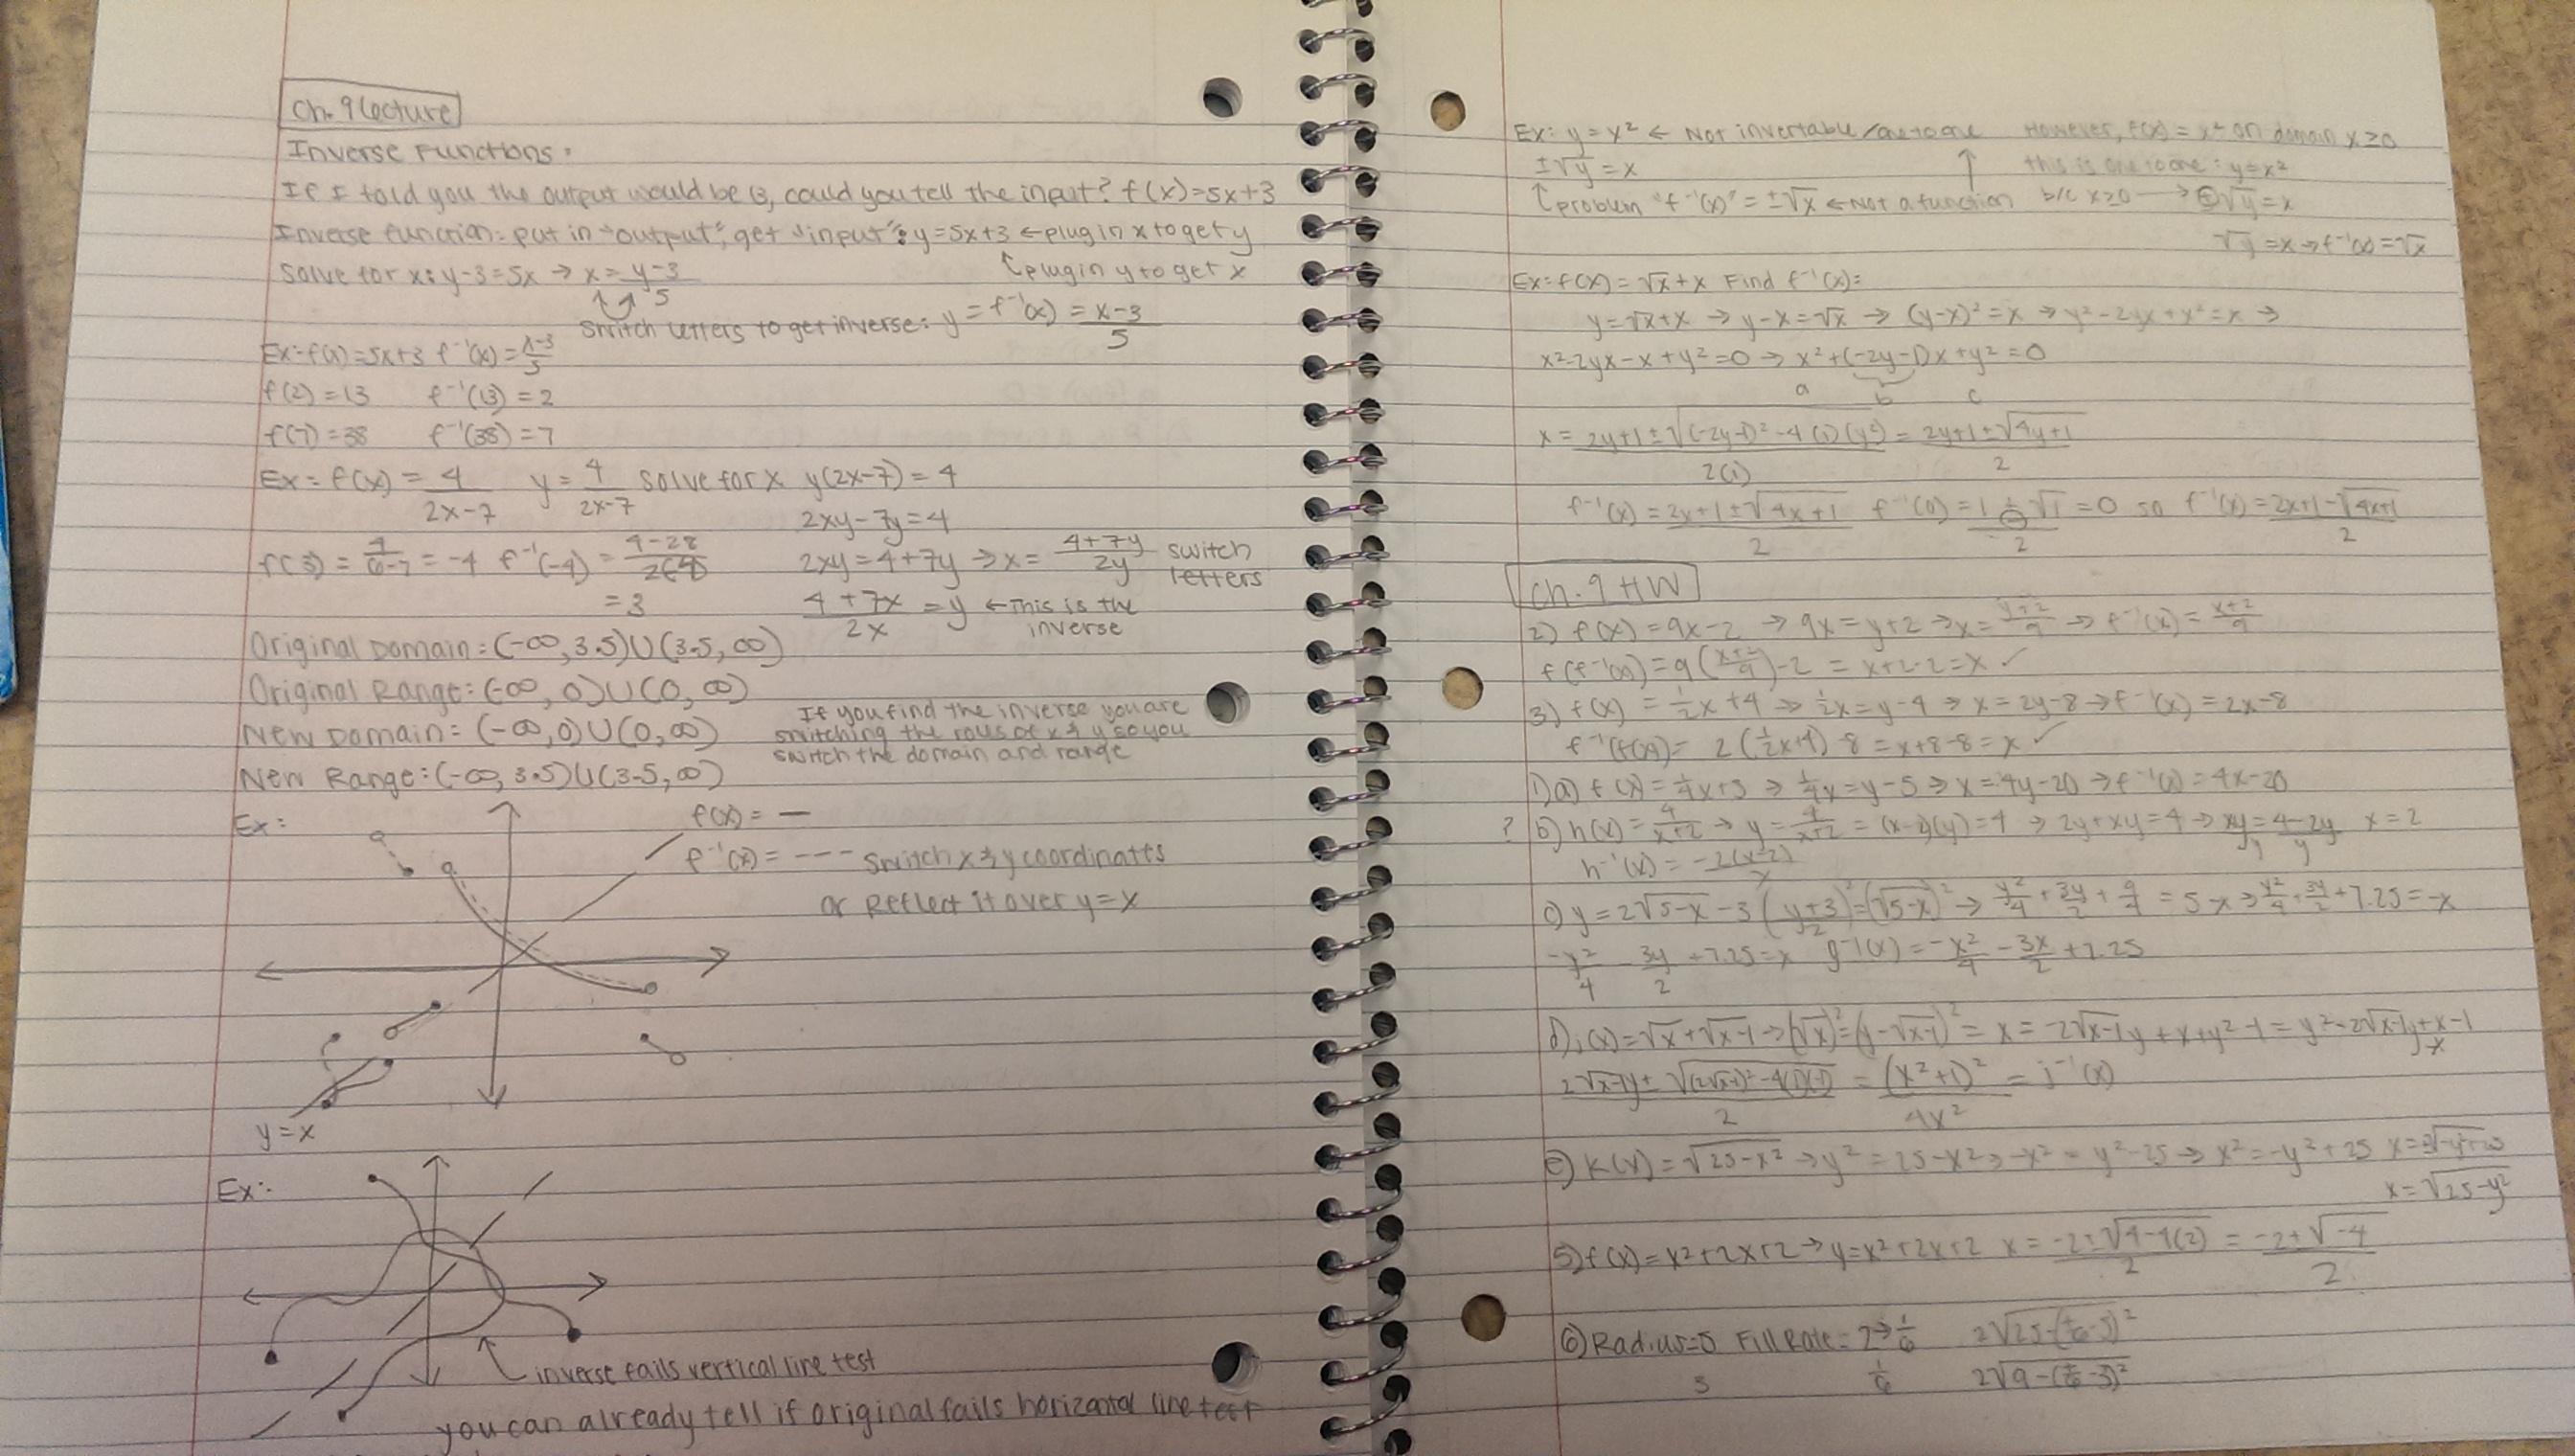 Ch. 9 Lecture
Inverse Functions:
If I told you the output would be 13, could you tell the input? f(x)=5x+3
Inverse function: put in "output", get "input": y=5x+3 ← plug in x to get y
↑ plug in y to get x
Solve for x: y-3=5x → x = (y-3)/5
Switch letters to get inverse: y = f⁻¹(x) = (x-3)/5
Ex: f(x)=5x+3 f⁻¹(x)=(x-3)/5
f(2)=13 f⁻¹(13)=2
f(7)=38 f⁻¹(38)=7
Ex: f(x) = 4/(2x-7) y = 4/(2x-7) solve for x y(2x-7)=4
2xy-7y=4
f(3) = 4/(6-7) = -4 f⁻¹(-4) = (4-28)/(2(-4)) 2xy=4+7y → x = (4+7y)/(2y) switch letters
=3 (4+7x)/(2x) = y ← This is the inverse
Original Domain: (-∞, 3.5)∪(3.5, ∞)
Original Range: (-∞, 0)∪(0, ∞)
New Domain: (-∞, 0)∪(0, ∞)
New Range: (-∞, 3.5)∪(3.5, ∞)
If you find the inverse you are
switching the roles of x & y so you
switch the domain and range
Ex: f(x) = —
f⁻¹(x) = --- Switch x & y coordinates
or Reflect it over y=x
y=x
Ex:
inverse fails vertical line test
you can already tell if original fails horizontal line test
Ex: y=x² ← Not invertable/one to one However, f(x) = x² on domain x≥0
±√y = x this is one to one: y=x²
↑ problem "f⁻¹(x)" = ±√x ← Not a function b/c x≥0 → ±√y = x
√y = x → f⁻¹(x) = √x
Ex: f(x) = √x+x Find f⁻¹(x):
y=√x+x → y-x=√x → (y-x)²=x → y²-2yx+x²=x →
x²-2yx-x+y²=0 → x²+(-2y-1)x+y²=0
a b c
x = (2y+1±√((-2y-1)²-4(1)(y²)))/(2(1)) = (2y+1±√(4y+1))/2
f⁻¹(x) = (2x+1±√(4x+1))/2 f⁻¹(0) = (1±√1)/2 = 0 so f⁻¹(x) = (2x+1-√(4x+1))/2
Ch. 9 HW
2) f(x)=9x-2 → 9x=y+2 → x=(y+2)/9 → f⁻¹(x)=(x+2)/9
f(f⁻¹(x))=9((x+2)/9)-2 = x+2-2=x ✓
3) f(x) = ½x+4 → ½x=y-4 → x=2y-8 → f⁻¹(x) = 2x-8
f⁻¹(f(x)) = 2(½x+4)-8 = x+8-8=x ✓
1) a) f(x)=¼x+5 → ¼x=y-5 → x=4y-20 → f⁻¹(x)=4x-20
? b) h(x)=4/(x+2) → y=4/(x+2) = (x+2)(y)=4 → 2y+xy=4 → xy/y = (4-2y)/y x=2
h⁻¹(x) = -2(x-2)/x
c) y=2√(5-x)-3 ((y+3)/2)²=(√(5-x))² → y²/4 + 3y/2 + 9/4 = 5-x → y²/4 + 3y/2 +7.25=-x
-y²/4 3y/2 +7.25=x g⁻¹(x) = -x²/4 - 3x/2 +7.25
d) j(x)=√x+√(x-1) → (√x)²=(y-√(x-1))² = x = -2√(x-1)y+x+y²-1 = y²-2√(x-1)y+x-1
(2√(x-1)y±√((2√(x-1))²-4(1)(-1)))/2 = (x²+1)²/4x² = j⁻¹(x)
e) k(x)=√(25-x²) → y²=25-x² → -x²=y²-25 → x²=-y²+25
x=√(25-y²)
5) f(x)=x²+2x+2 → y=x²+2x+2 x = (-2±√(4-4(2)))/2 = (-2±√-4)/2
6) Radius=5 Fill Rate=
3